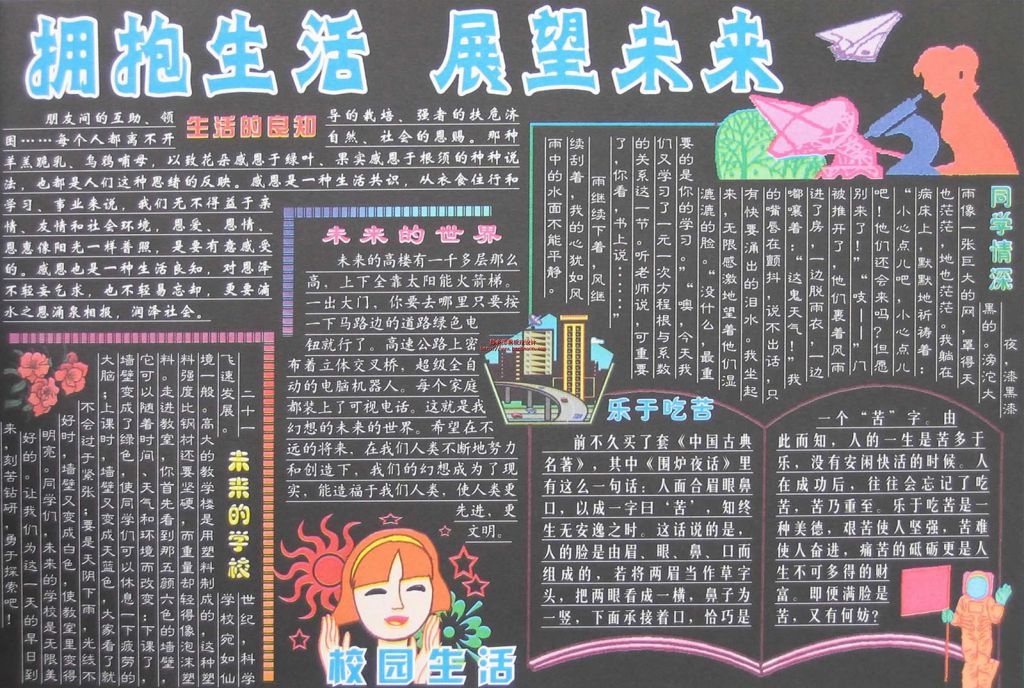 拥抱生活 展望未来
生活的良知
朋友间的互助、领导的栽培、强者的扶危济
困……每个人都离不开自然、社会的恩赐。那种
羊羔跪乳、乌鸦哺母，以致花朵感恩于绿叶、果实感恩于根须的种种说
法，也都是人们这种思绪的反映。感恩是一种生活共识，从衣食住行和
学习、事业来说，我们无不得益于亲
情、友情和社会环境，恩爱、恩情、
恩惠像阳光一样普照，是要有意感受
的。感恩也是一种生活良知，对恩泽
不轻妄乞求，也不轻易忘却，更要滴
水之恩涌泉相报，润泽社会。
未来的世界
未来的高楼有一千多层那么
高，上下全靠太阳能火箭梯。
一出大门，你要去哪里只要按
一下马路边的道路绿色电
钮就行了。高速公路上密
布着立体交叉桥，超级全自
动的电脑机器人。每个家庭
都装上了可视电话。这就是我
幻想的未来的世界。希望在不
远的将来，在我们人类不断地努力
和创造下，我们的幻想成为了现
实，能造福于我们人类，使人类更
先进、更
文明。
同学情深
夜，漆黑漆
黑的。滂沱大
雨像一张巨大的网，罩得天
也茫茫，地也茫茫。我躺在
病床上，默默祈祷着：
“小心点儿吧，小心点儿
吧！他们还会来吗？但愿
别来了！”“吱——门
被推开了，他们裹着风雨
进了房，一边脱雨衣，一边
嘟囔着：“这鬼天气。”我
的嘴唇在颤抖，说不出话，只
有快要涌出的泪水。我坐起
来，无限感激地望着他们湿
漉漉的脸。“没什么，最重
要的是你的学习。”“噢，今天我
们又学习了一元一次方程根与系数
的关系这一节。听老师说，可重要
了，你看，书上说……”
雨继续下着，风继
续刮着，我的心犹如风
雨中的水面不能平静。
未来的学校
二十一世纪，科学
飞速发展。学校宛如仙
境一般。高大的教学楼是用塑料制成的，这种塑
料强度比钢材还要坚硬，而重量却轻得像泡沫塑
料。走进教室，你首先看到那五颜六色的墙壁，
它可以随着时间、天气和环境而改变：下课了，
墙壁变成了绿色，使同学们可以休息一下疲劳的
大脑；上课时，墙壁又变成天蓝色，大家看了就
不会过于紧张；要是天阴下雨，光线不
好时，墙壁又变成白色，使教室里变得
明亮。同学们，未来的学校是无限美
好的。让我们为这一天的早日到
来，刻苦钻研，勇于探索吧！
乐于吃苦
前不久买了套《中国古典
名著》，其中《围炉夜话》里
有这么一句话：人面合眉眼鼻
口，以成一字曰‘苦’，知终
生无安逸之时。这话说的是，
人的脸是由眉、眼、鼻、口而
组成的，若将两眉当作草字
头，把两眼看成一横，鼻子为
一竖，下面承接着口，恰巧是
一个“苦”字。由
此而知，人的一生是苦多于
乐，没有安闲快活的时候。人
在成功后，往往会忘记了吃
苦，苦乃重生。乐于吃苦是一
种美德，艰苦使人坚强，苦难
使人奋进，痛苦的砥砺更是人
生不可多得的财
富。即便满脸是
苦，又有何妨？
校园生活